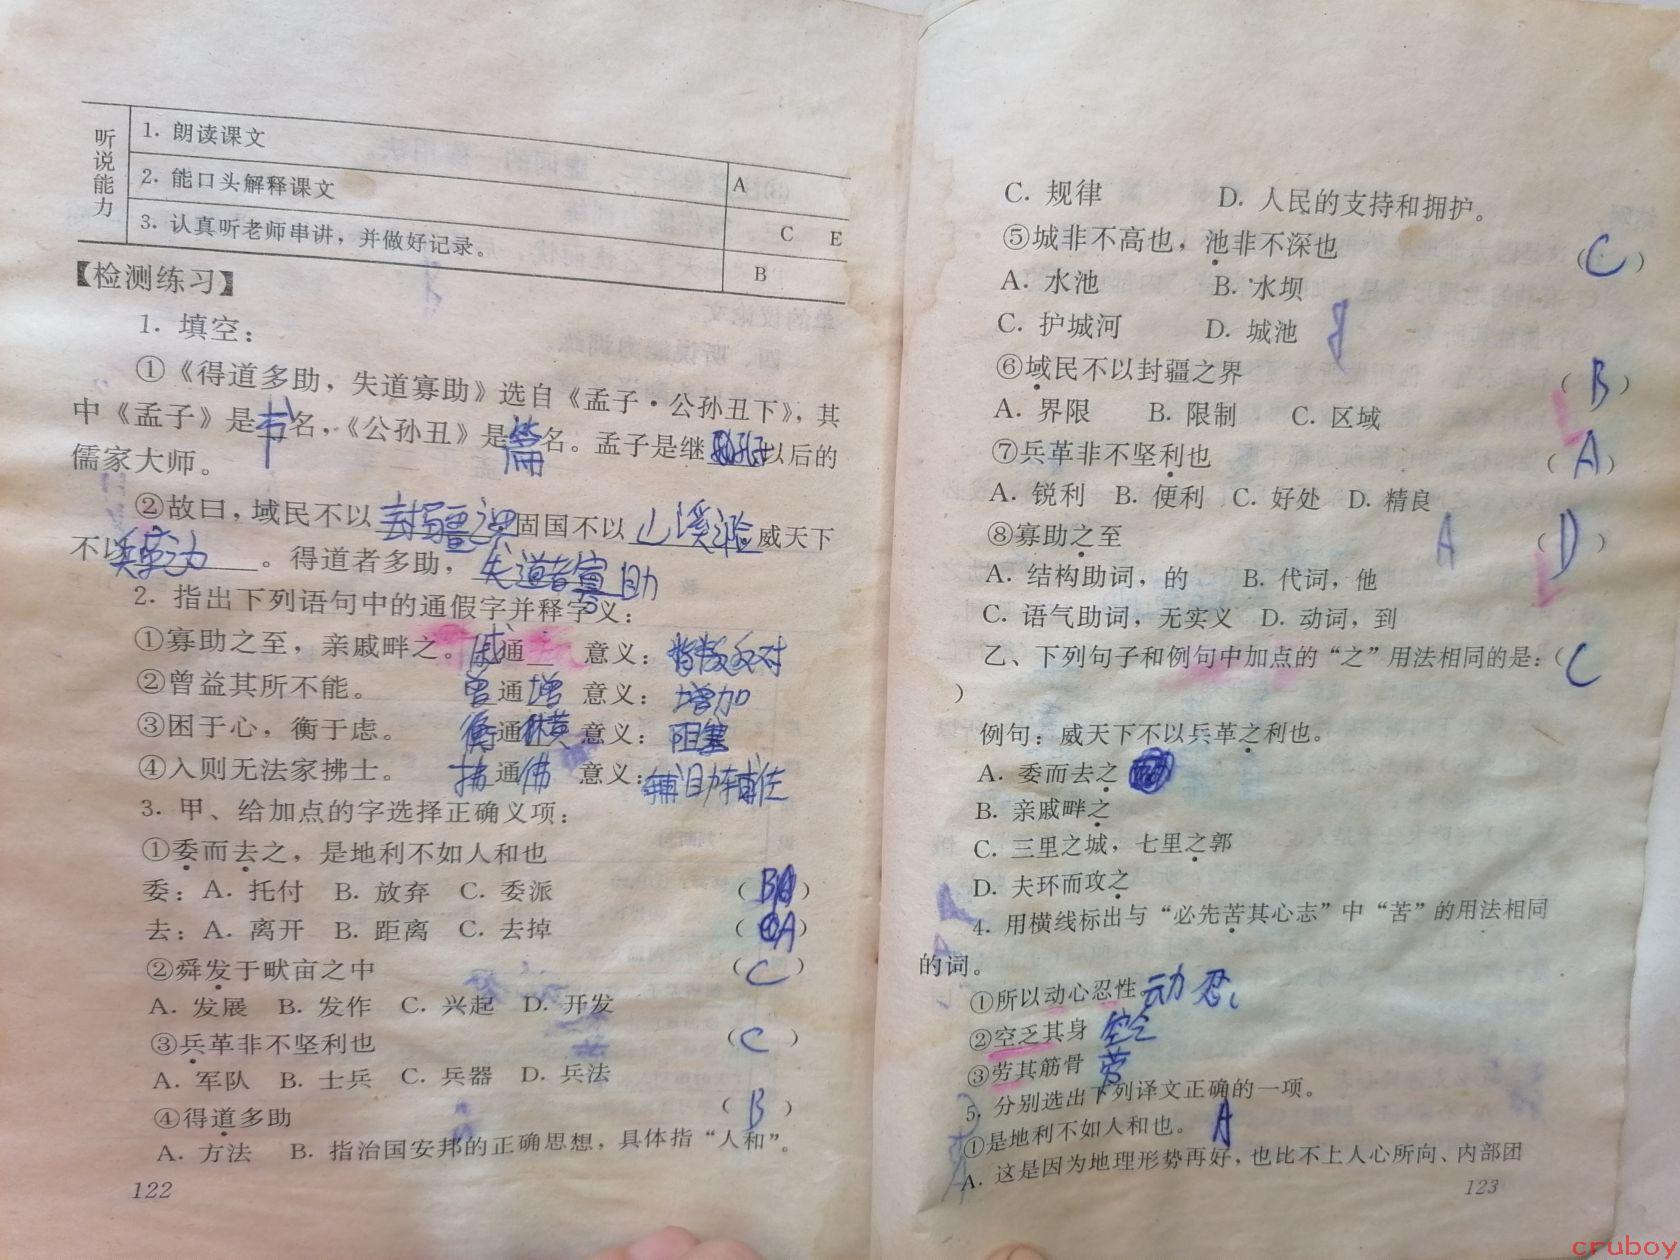 听说能力
1. 朗读课文
2. 能口头解释课文 A
3. 认真听老师串讲，并做好记录。 C E
B
【检测练习】
1. 填空：
①《得道多助，失道寡助》选自《孟子·公孙丑下》，其
中《孟子》是书名，《公孙丑》是篇名。孟子是继孔子以后的
儒家大师。
②故曰，域民不以封疆之界固国不以山溪之险威天下
不以兵革之力。得道者多助，失道者寡助
2. 指出下列语句中的通假字并释字义：
①寡助之至，亲戚畔之。戚通 意义：背叛反对
②曾益其所不能。 曾通增 意义：增加
③困于心，衡于虑。 衡通横 意义：阻塞
④入则无法家拂士。 拂通佛 意义：辅助辅佐
3. 甲、给加点的字选择正确义项：
①委而去之，是地利不如人和也
委：A. 托付 B. 放弃 C. 委派 （B）
去：A. 离开 B. 距离 C. 去掉 （A）
②舜发于畎亩之中 （C）
A. 发展 B. 发作 C. 兴起 D. 开发
③兵革非不坚利也 （C）
A. 军队 B. 士兵 C. 兵器 D. 兵法
④得道多助 （B）
A. 方法 B. 指治国安邦的正确思想，具体指“人和”。
122
C. 规律 D. 人民的支持和拥护。
⑤城非不高也，池非不深也 （C）
A. 水池 B. 水坝
C. 护城河 D. 城池
⑥域民不以封疆之界 （B）
A. 界限 B. 限制 C. 区域
⑦兵革非不坚利也 （A）
A. 锐利 B. 便利 C. 好处 D. 精良
⑧寡助之至 A （D）
A. 结构助词，的 B. 代词，他
C. 语气助词，无实义 D. 动词，到
乙、下列句子和例句中加点的“之”用法相同的是：（C
）
例句：威天下不以兵革之利也。
A. 委而去之
B. 亲戚畔之
C. 三里之城，七里之郭
D. 夫环而攻之
4. 用横线标出与“必先苦其心志”中“苦”的用法相同
的词。
①所以动心忍性 动 忍
②空乏其身 空乏
③劳其筋骨 劳
5. 分别选出下列译文正确的一项。
①是地利不如人和也。 A
A. 这是因为地理形势再好，也比不上人心所向、内部团
123
cruboy